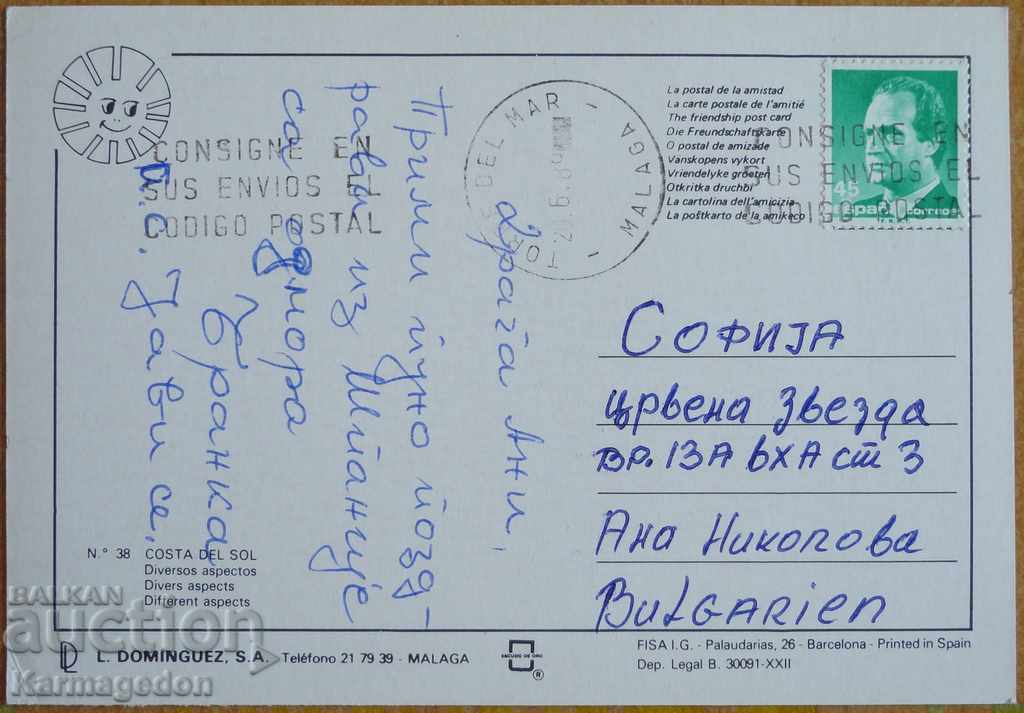 Драга Ани,
Прими пуно позд-
рави из Шпаније
са одмора
Бранка
П.С. Јави се.
CONSIGNE EN
SUS ENVIOS EL
CODIGO POSTAL
DEL MAR
MALAGA
La postal de la amistad
La carte postale de l'amitié
The friendship post card
Die Freundschaftskarte
O postal de amizade
Vanskopens vykort
Vriendelyke groeten
Otkritka druchbi
La cartolina dell'amicizia
La poŝtkarto de la amikeco
CONSIGNE EN
SUS ENVIOS EL
CODIGO POSTAL
45
españa correos
Софија
Црвена Звезда
бр. 13А вх А ст 3
Ана Николова
BULGARIEN
N.° 38 COSTA DEL SOL
Diversos aspectos
Divers aspects
Different aspects
L. DOMINGUEZ, S.A. Teléfono 21 79 39 - MALAGA
ESCUDO DE ORO
®
FISA I.G. - Palaudarias, 26 - Barcelona - Printed in Spain
Dep. Legal B. 30091-XXII
BALKAN
auction
Karmagedon